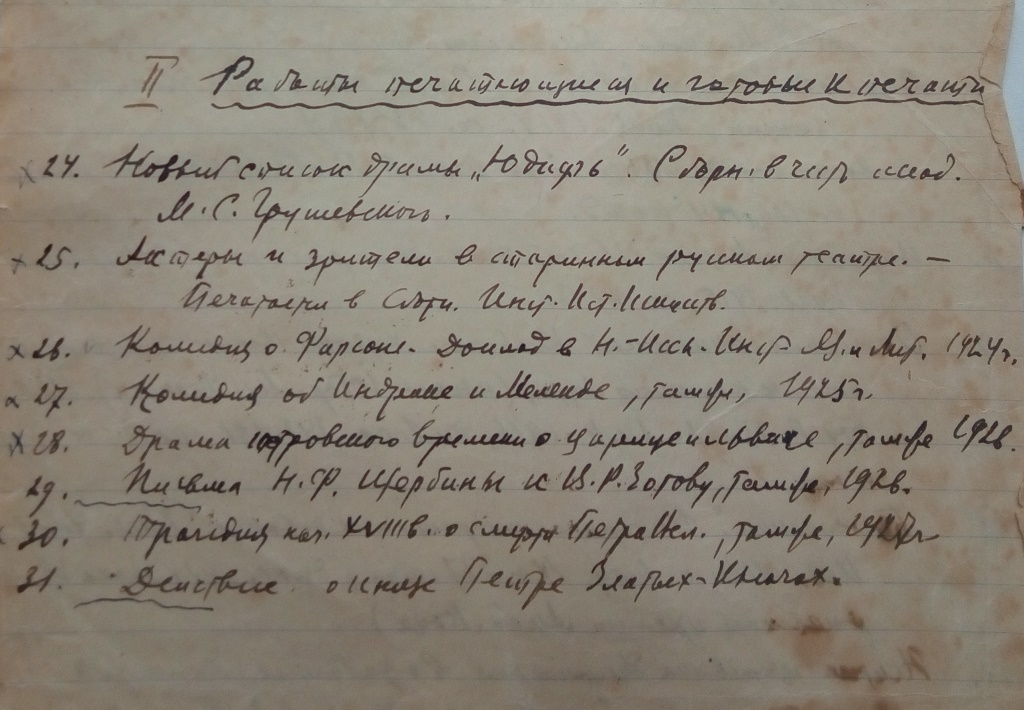 II Работы печатающиеся и готовые к печати
24. Новый список драмы „Юдифь“. Сборн. в честь акад.
М. С. Грушевского.
25. Актеры и зрители в старинном русском театре. —
Печатается в Сборн. Инст. Ист. Искусств.
26. Комидия о Фарсоне. Доклад в Н.-Иссл. Инст. Яз. и Лит. 1924 г.
27. Комидия об Индрике и Меленде, там же, 1925 г.
28. Драма петровского времени о царице и львице, там же 1926.
29. Письма Н. Ф. Щербины к В. Р. Зотову, там же, 1926.
30. Трагедия нач. XVIII в. о смерти Петра Вел., там же, 1927 г.
31. Действие о князе Петре Златых-Ключах.